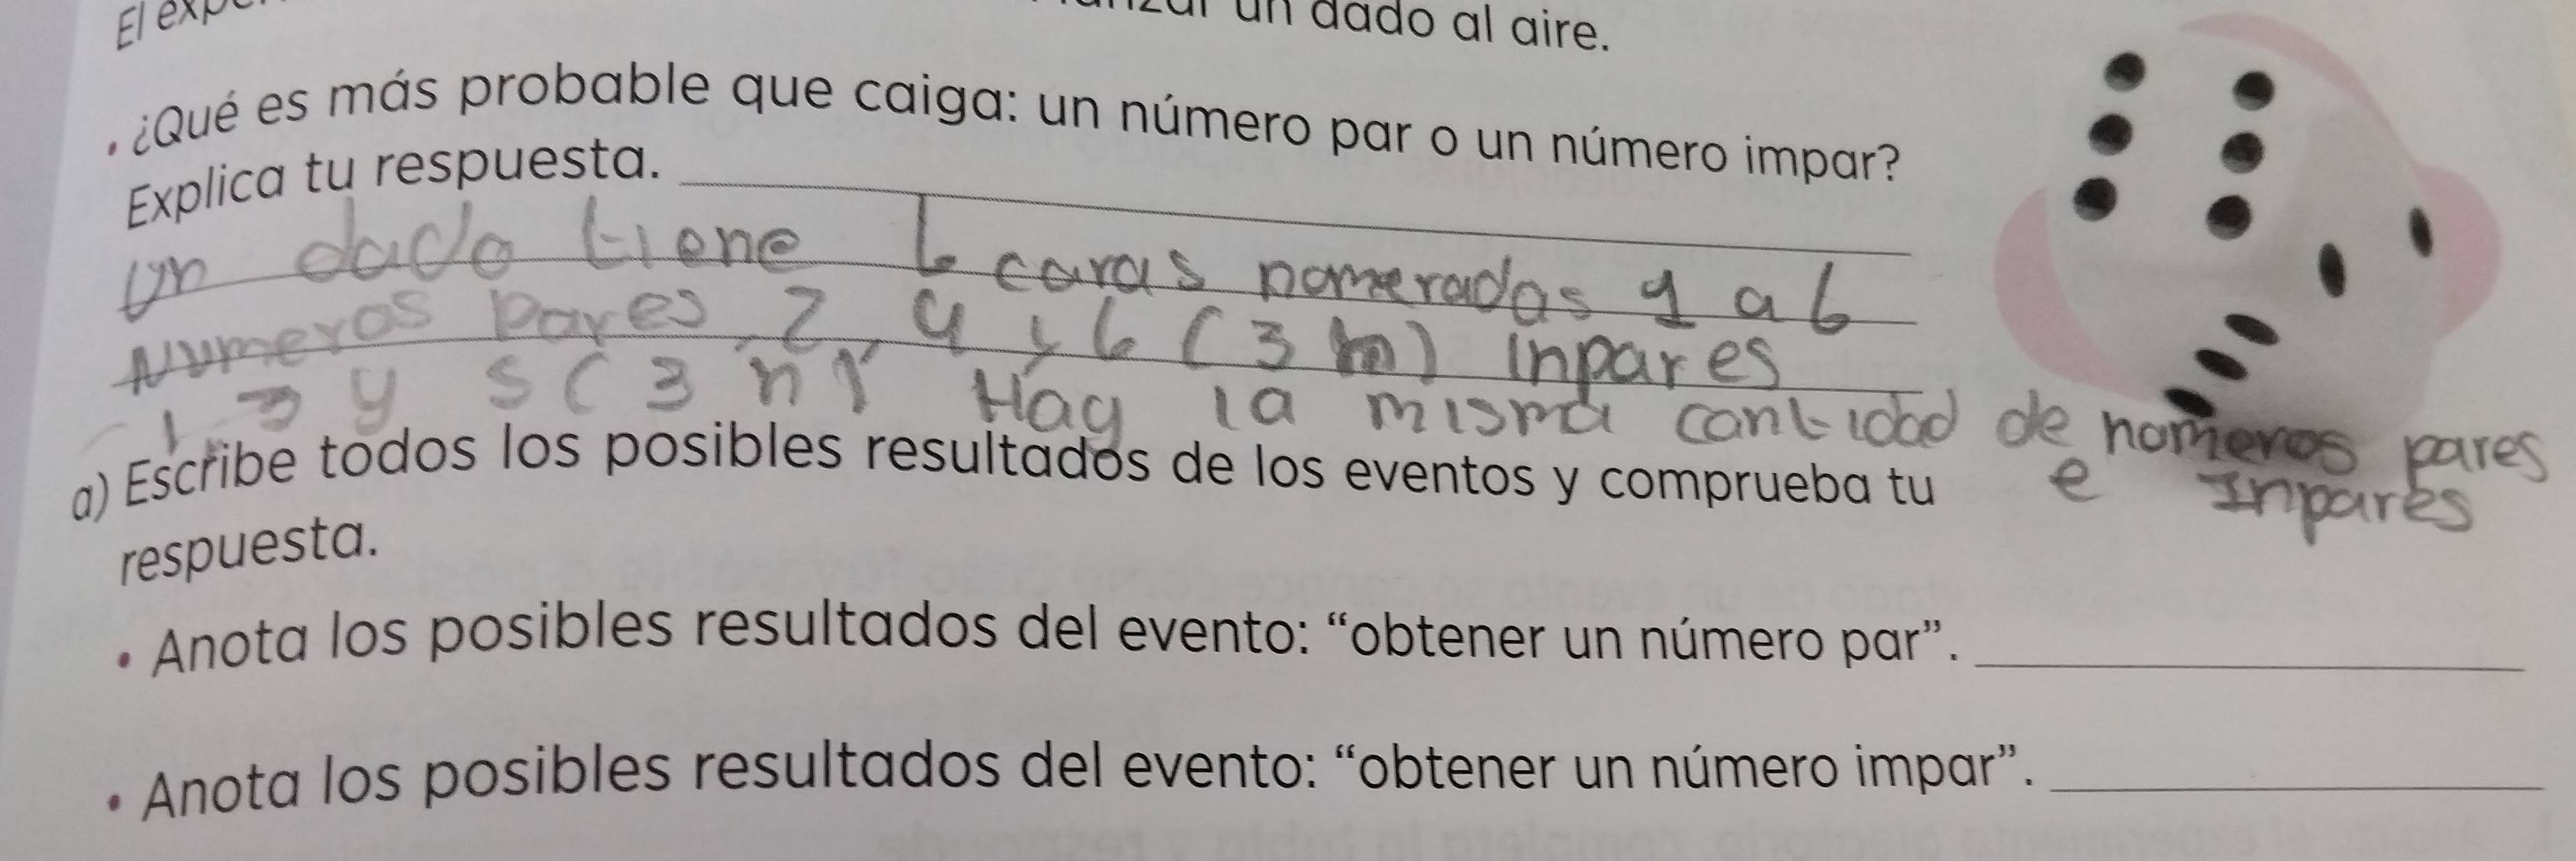 El exp un dado al aire.
• ¿Qué es más probable que caiga: un número par o un número impar?
Explica tu respuesta.
Un dado tiene 6 caras nomeradas 1 a 6
Numeros pares 2, 4 y 6 (3 ) Inpares
1 3 y 5 ( 3 n) Hay la misma cantidad de nomeros pares
e Inpares
a) Escribe todos los posibles resultados de los eventos y comprueba tu
respuesta.
• Anota los posibles resultados del evento: “obtener un número par”.
• Anota los posibles resultados del evento: “obtener un número impar”.